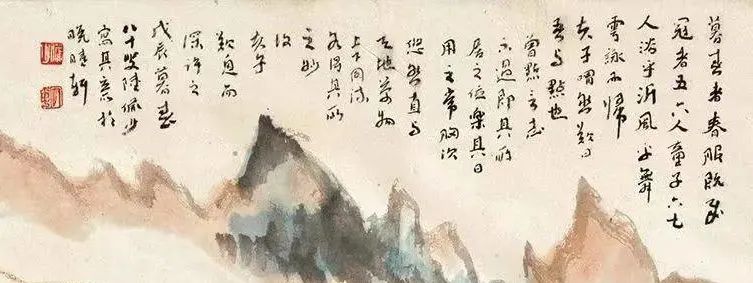 暮春者春服既成
冠者五六人童子六七
人浴乎沂風乎舞
雩詠而歸
夫子喟然歎曰
吾與點也
曾點言志
不過即其所
居之位樂其日
用之常胸次
悠然直與
天地萬物
上下同流
各得其所
之妙
故
夫子
歎息而
深許之
戊辰暮春
八十叟陸儼少
寫其意於
晚晴軒